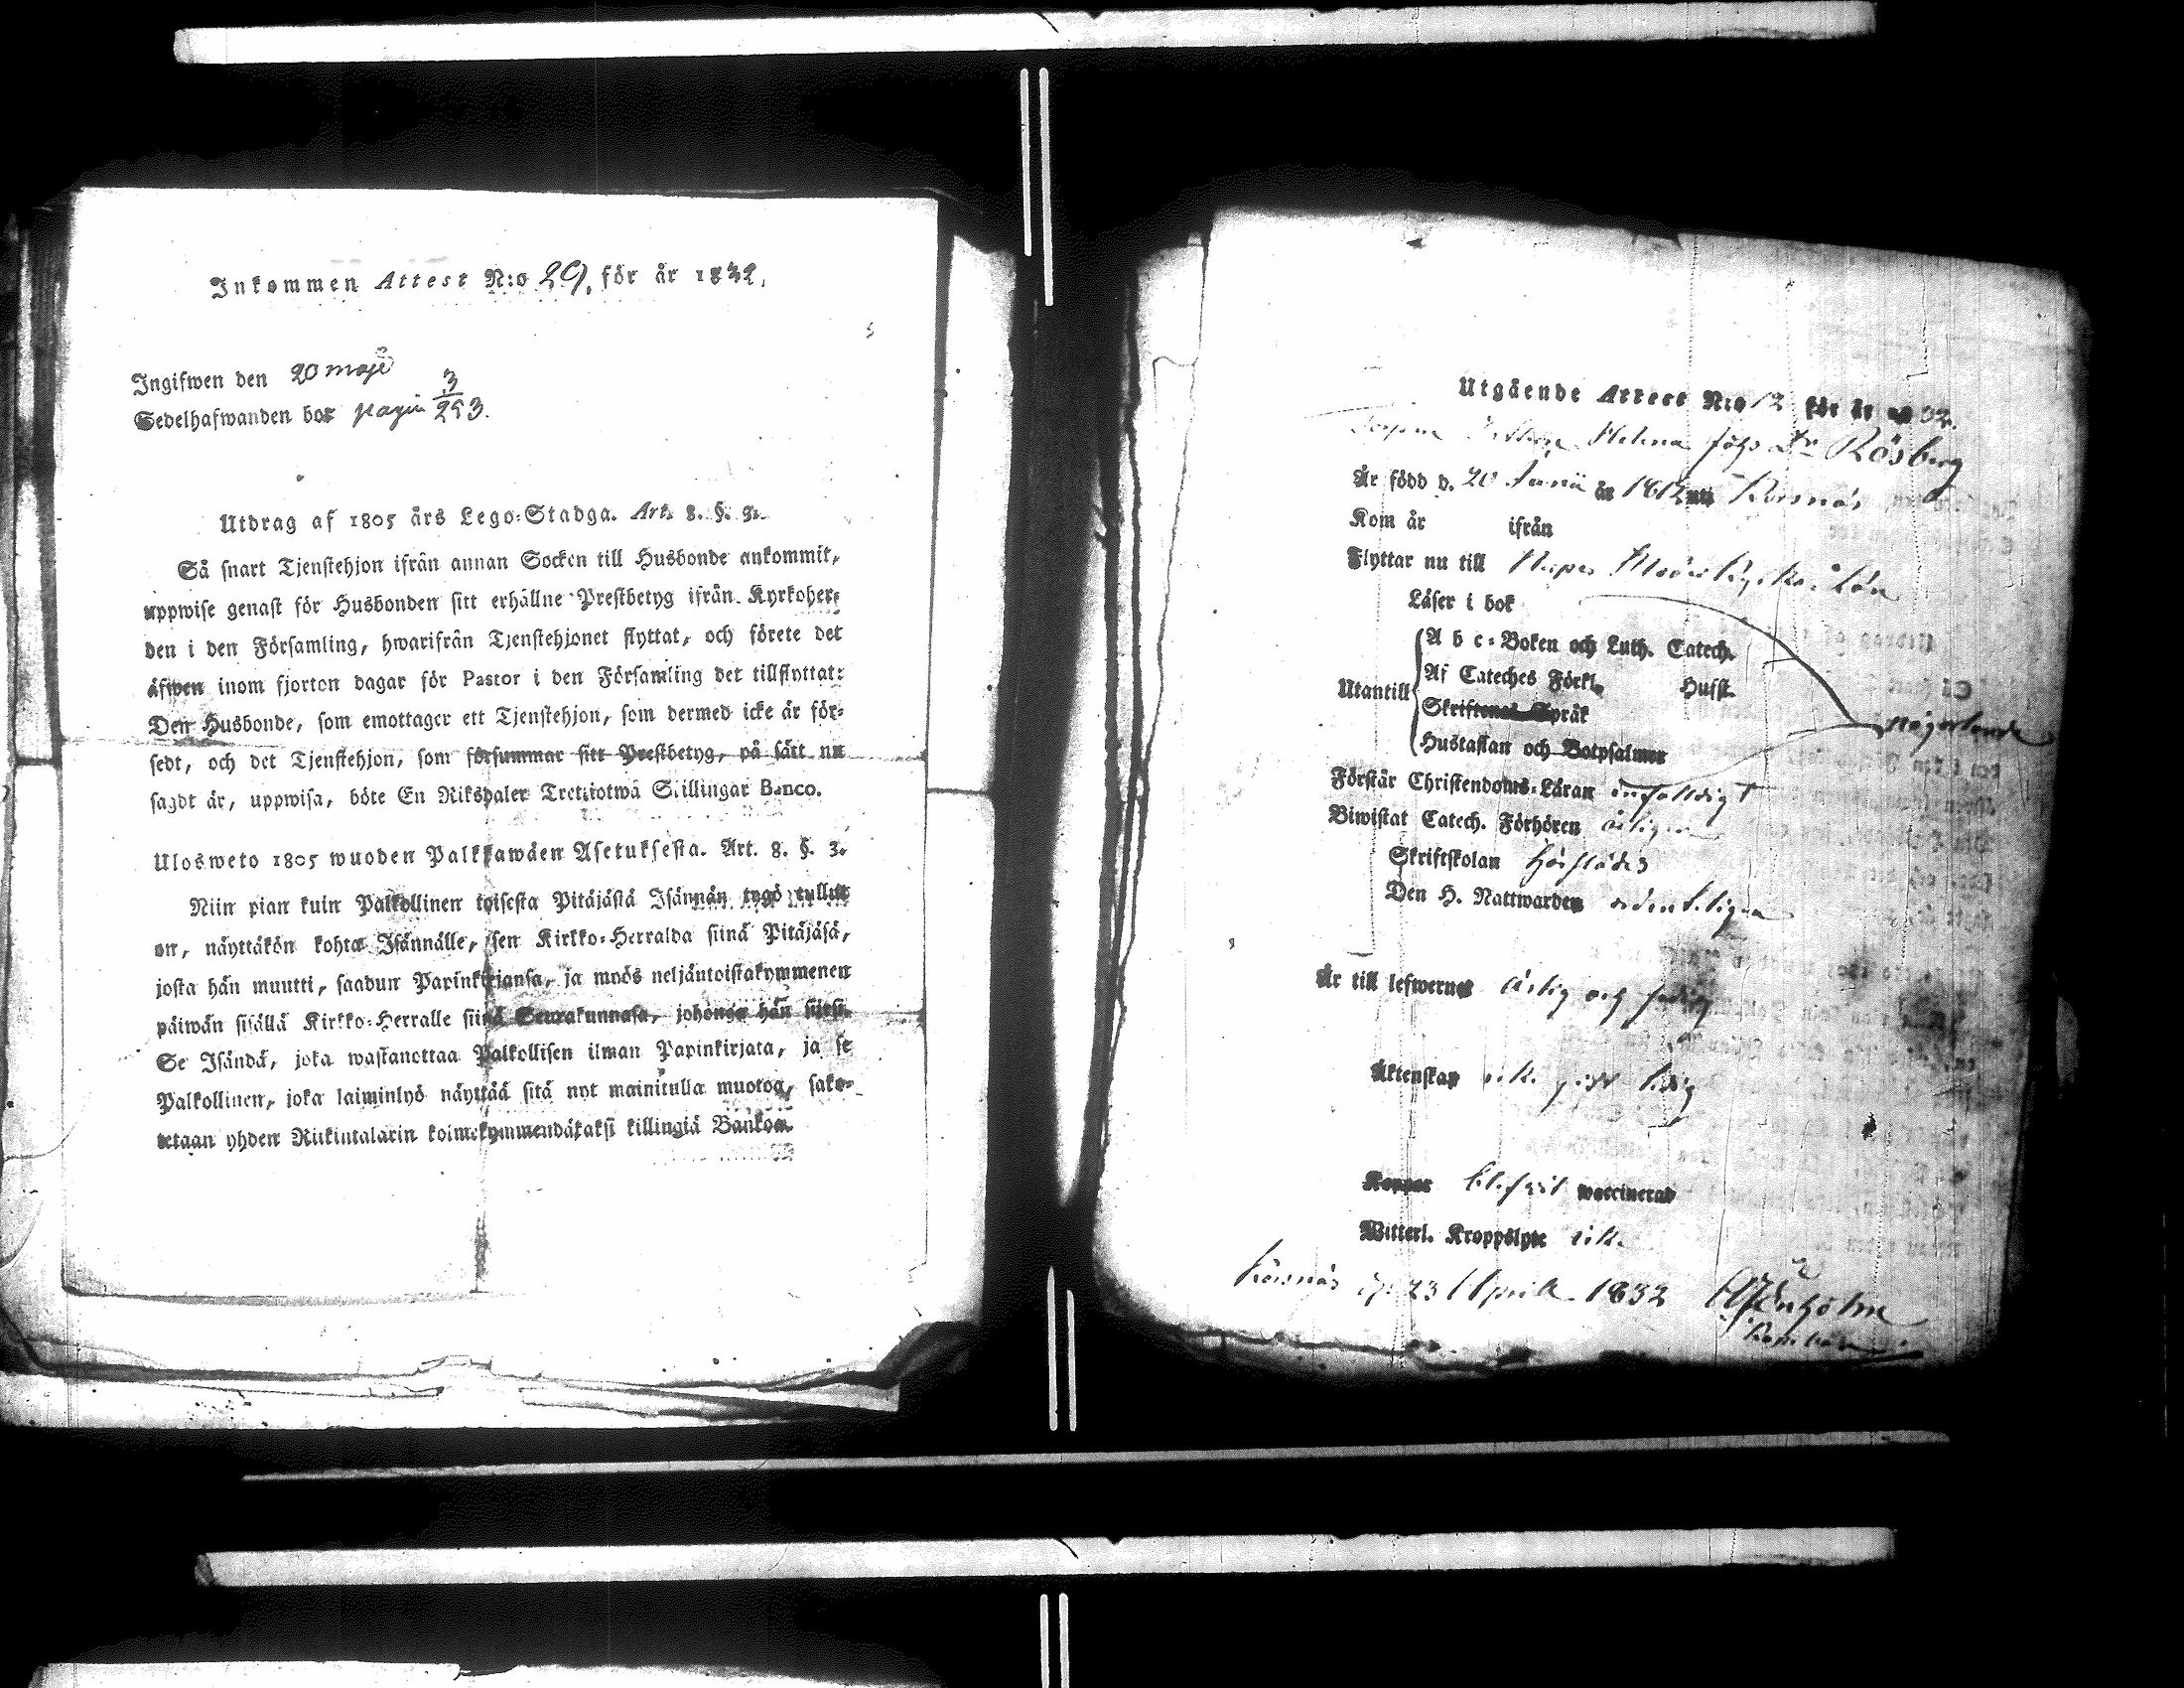 Inkommen Attest N:o 29. för år 1832.
Ingifwen den 20 maji
Sedelhafwanden bor pagin 3/293.
Utdrag af 1805 års Lego-Stadga. Art. 8. §. 3.
Så snart Tjenstehjon ifrån annan Socken till Husbonde ankommit,
uppwise genast för Husbonden sitt erhållne Prestbetyg ifrån Kyrkoher-
den i den Församling, hwarifrån Tjenstehjonet flyttat, och förete det
äfwen inom fjorton dagar för Pastor i den Församling det tillflyttat:
Den Husbonde, som emottager ett Tjenstehjon, som dermed icke är för-
sedt, och det Tjenstehjon, som försummar sitt Prestbetyg, på sätt nu
sagdt är, uppwisa, böte En Riksdaler Trettiotwå Skillingar Banco.
Ulosweto 1805 wuoden Palkkawäen Asetuksesta. Art. 8. §. 3.
Niin pian kuin Palkollinen toisesta Pitäjästä Isännän tygö tullut
on, näyttäkön kohta Isännälle, sen Kirkko-Herralda siinä Pitäjäsä,
josta hän muutti, saadun Papinkirjansa, ja myös neljäntoistakymmenen
päiwän sisällä Kirkko-Herralle siinä Seurakunnasa, johonga hän siirsi.
Se Isändä, joka wastanottaa Palkollisen ilman Papinkirjata, ja se
Palkollinen, joka laiminlyö näyttää sitä nyt mainitulla muotoa, sako-
tetaan yhden Riikintalarin kolmekymmendäkaksi killingiä Bankoa.
Utgående Attest N:o 12 för år 1832.
Helena Rösberg
Är född d. 20 Junii år 1812 uti Korsnäs
Kom år ifrån
Flyttar nu till
Läser i bok
Utantill
A b c-Boken och Luth. Catech.
Af Cateches Förkl. Husst.
Skriftenes Språk
Hustaflan och Botpsalmer
någorlunda
Förstår Christendoms-Läran enfalldigt
Biwistat Catech. Förhören årligen
Skriftskolan
Den H. Nattwarden ordenteligen
Är till lefwernet ärlig och
Äktenskap ledig
Koppor vaccinerad
Witterl. Kroppslyte
Korsnäs d. 23 April 1832